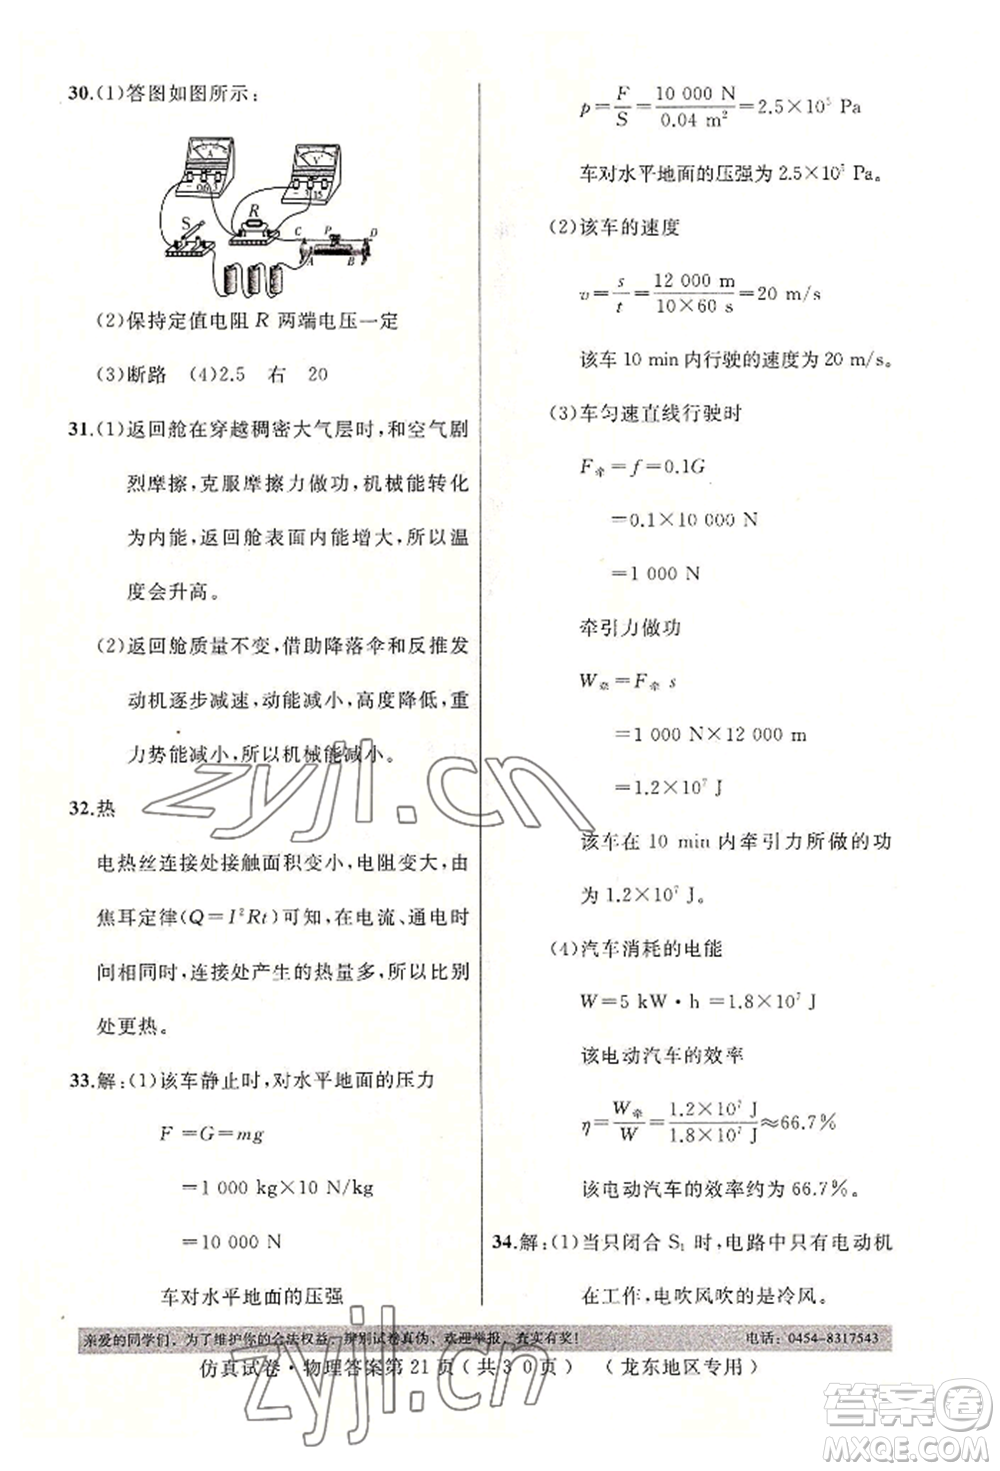 30.(1)答图如图所示:
A
V
-0.6 3
-3 15
S
R
C P D
A B
(2)保持定值电阻 R 两端电压一定
(3)断路 (4)2.5 右 20
31.(1)返回舱在穿越稠密大气层时,和空气剧
烈摩擦,克服摩擦力做功,机械能转化
为内能,返回舱表面内能增大,所以温
度会升高。
(2)返回舱质量不变,借助降落伞和反推发
动机逐步减速,动能减小,高度降低,重
力势能减小,所以机械能减小。
32.热
电热丝连接处接触面积变小,电阻变大,由
焦耳定律(Q=I²Rt)可知,在电流、通电时
间相同时,连接处产生的热量多,所以比别
处更热。
33.解:(1)该车静止时,对水平地面的压力
F=G=mg
=1 000 kg×10 N/kg
=10 000 N
车对水平地面的压强
p=F/S=10 000 N/0.04 m²=2.5×10⁵ Pa
车对水平地面的压强为 2.5×10⁵ Pa。
(2)该车的速度
v=s/t=12 000 m/10×60 s=20 m/s
该车 10 min 内行驶的速度为 20 m/s。
(3)车匀速直线行驶时
F牵=f=0.1G
=0.1×10 000 N
=1 000 N
牵引力做功
W牵=F牵 s
=1 000 N×12 000 m
=1.2×10⁷ J
该车在 10 min 内牵引力所做的功
为 1.2×10⁷ J。
(4)汽车消耗的电能
W=5 kW·h=1.8×10⁷ J
该电动汽车的效率
η=W牵/W=1.2×10⁷ J/1.8×10⁷ J≈66.7%
该电动汽车的效率约为 66.7%。
34.解:(1)当只闭合 S₁ 时,电路中只有电动机
在工作,电吹风吹的是冷风。
亲爱的同学们,为了维护你的合法权益,辨别试卷真伪,欢迎举报,查实有奖! 电话:0454-8317543
仿真试卷·物理答案第21页(共30页) (龙东地区专用)
zyjl.cn
zyjl.cn
答案卷
MXQE.COM